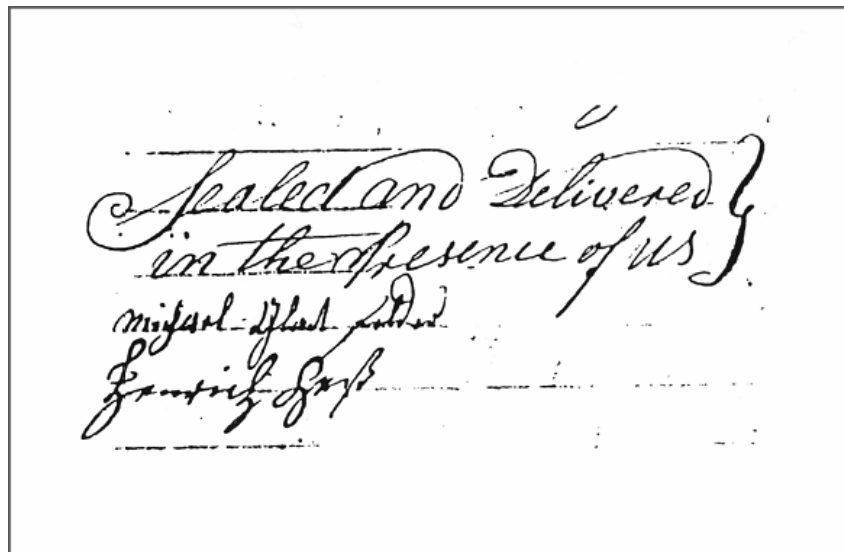 Sealed and Delivered
in the Presence of us
Michael Glad felder
Henrich Heß